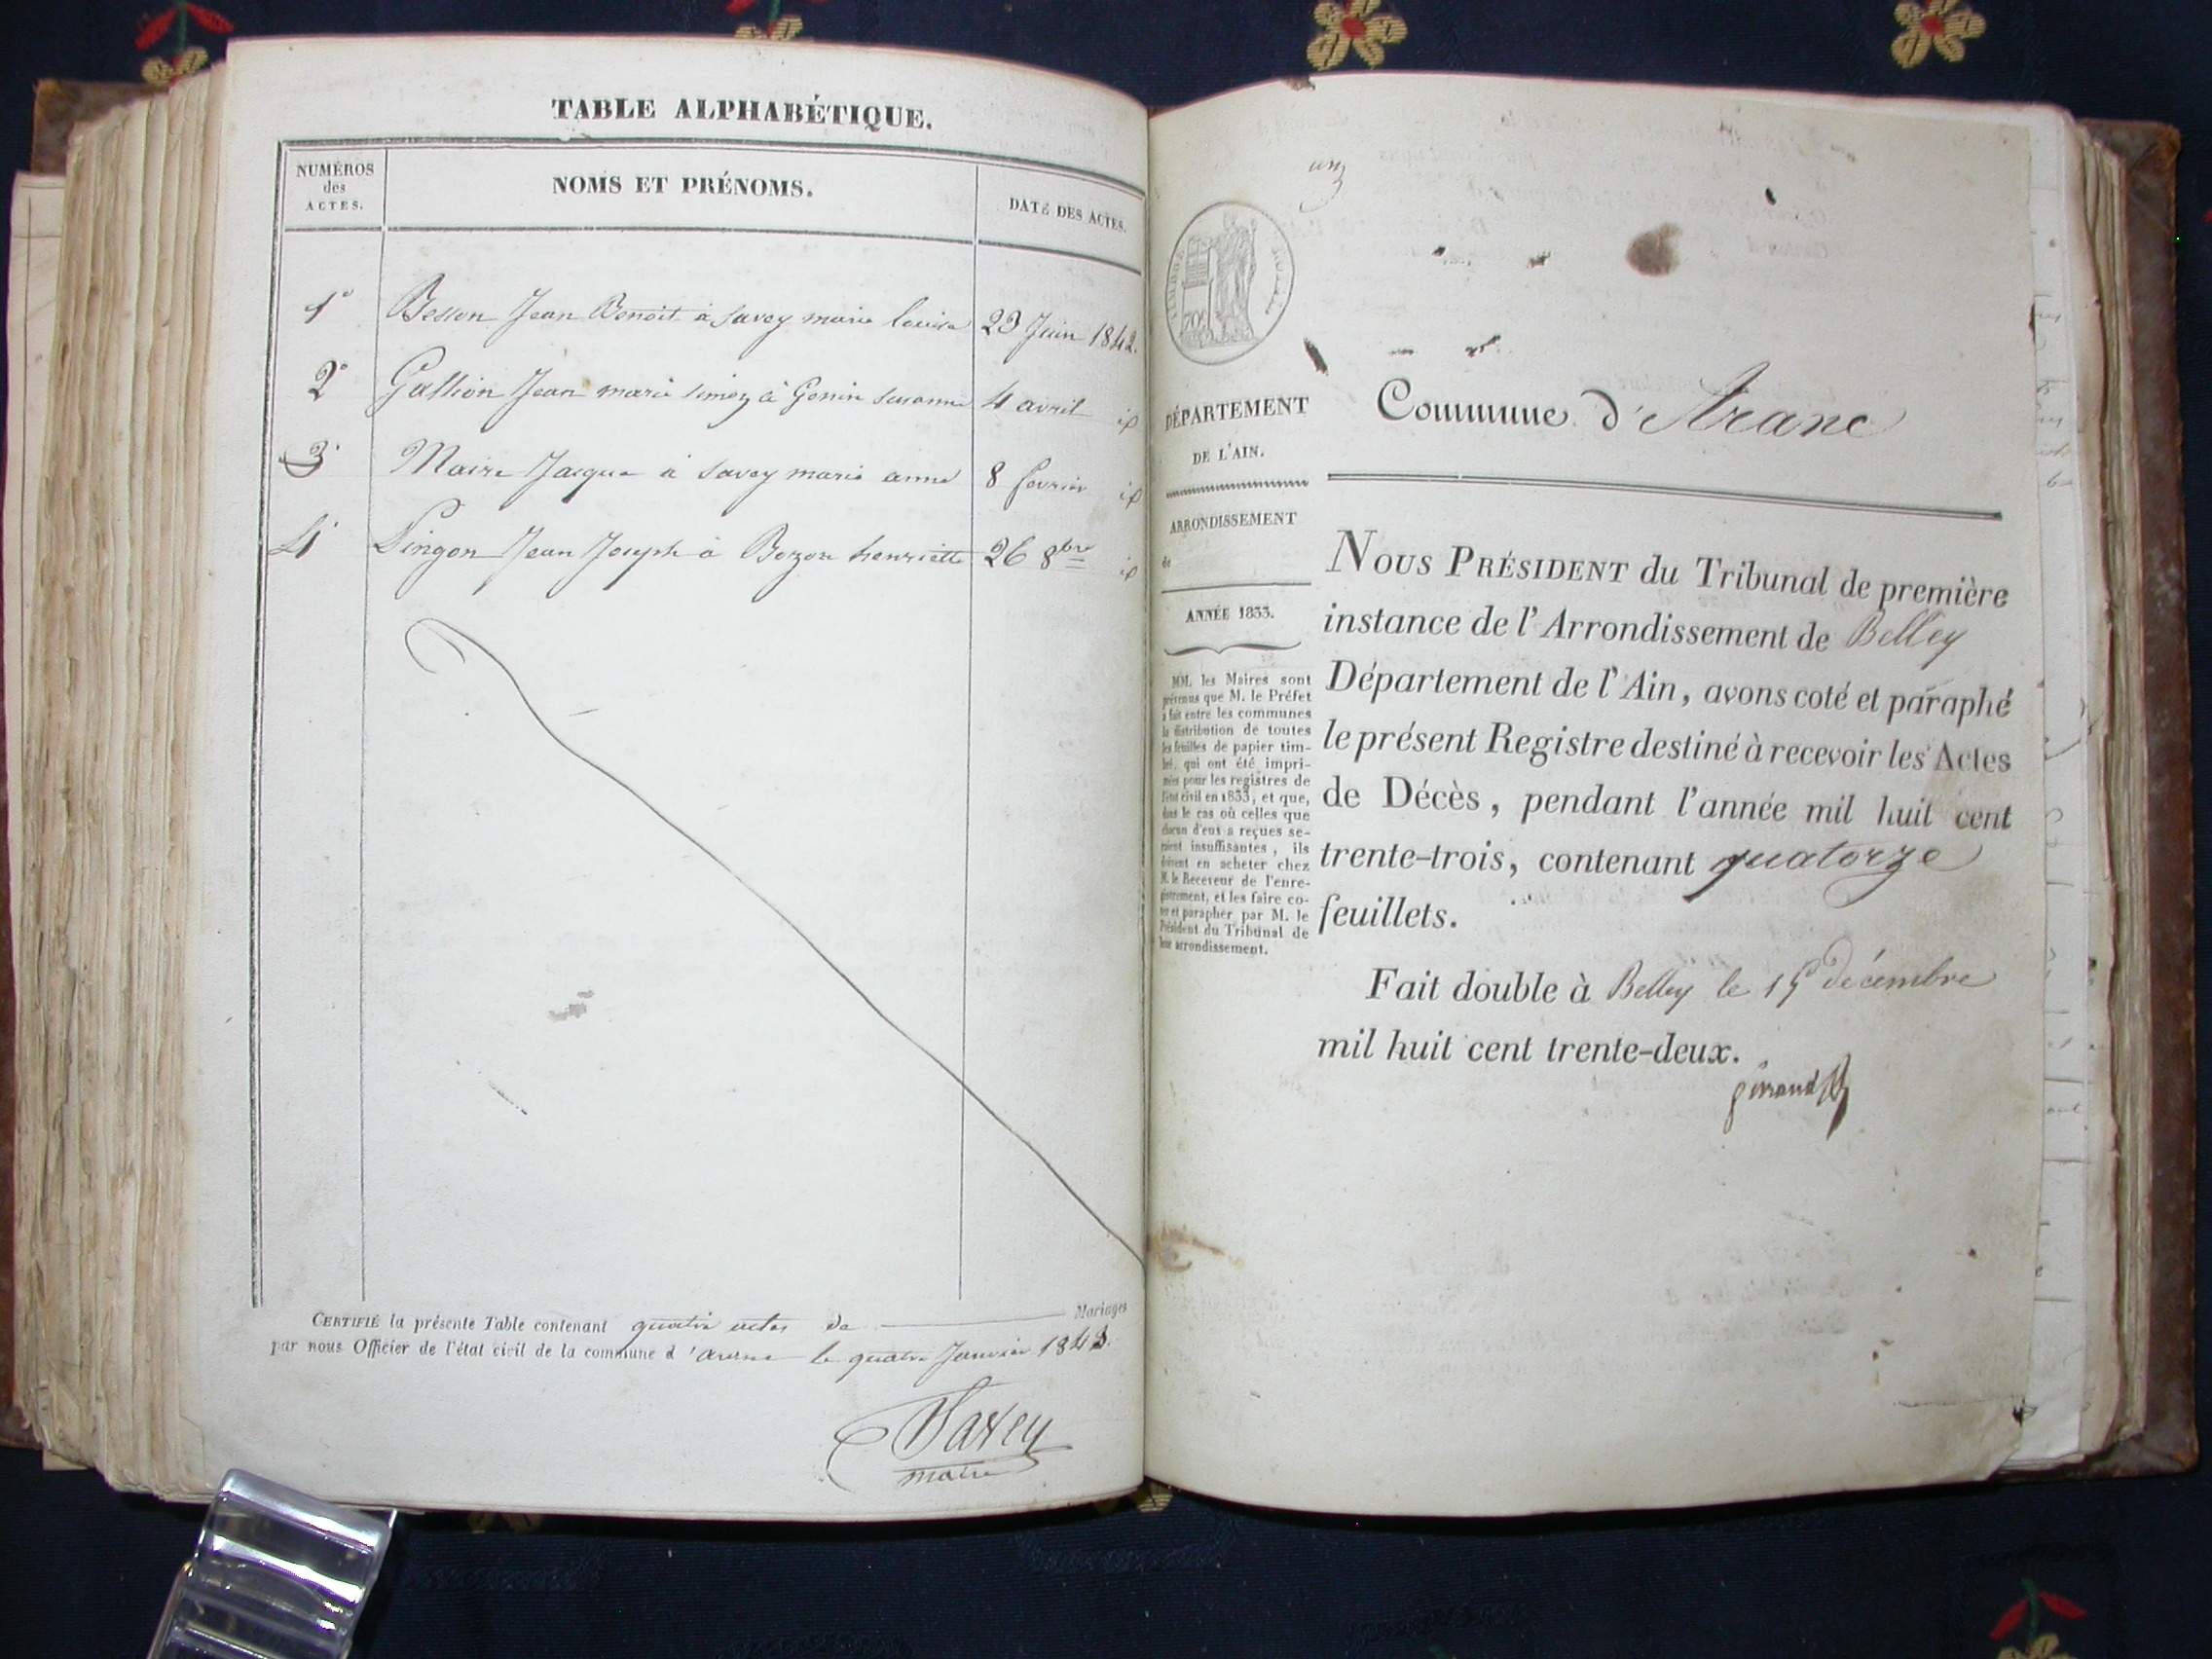 TABLE ALPHABÉTIQUE.
NUMÉROS
des
ACTES.
NOMS ET PRÉNOMS.
DATE DES ACTES.
1° Besson Jean Benoit à Savey marie louise 23 Juin 1842.
2° Jean marie à Genin Susanne 4 avril id
3° Maire Jacque à Savey marie anne 8 fevrier id
4° Singon Jean Joseph à Bozon henriette 26 8bre id
CERTIFIÉ la présente Table contenant quatre actes de Mariages
par nous Officier de l'état civil de la commune d'aranc le quatre Janvier 1843.
Savey
maire
un
DÉPARTEMENT
DE L'AIN.
ARRONDISSEMENT
de
ANNÉE 1833.
MM. les Maires sont
prévenus que M. le Préfet
a fait entre les communes
la distribution de toutes
les feuilles de papier tim-
bré, qui ont été impri-
mées pour les registres de
l'état civil en 1833, et que,
dans le cas où celles que
chacun d'eux a reçues se-
raient insuffisantes, ils
doivent en acheter chez
M. le Receveur de l'enre-
gistrement, et les faire co-
ter et parapher par M. le
Président du Tribunal de
leur arrondissement.
Commune d'Aranc
NOUS PRÉSIDENT du Tribunal de première
instance de l'Arrondissement de Belley
Département de l'Ain, avons coté et paraphé
le présent Registre destiné à recevoir les Actes
de Décès, pendant l'année mil huit cent
trente-trois, contenant quatorze
feuillets.
Fait double à Belley le 15 décembre
mil huit cent trente-deux.